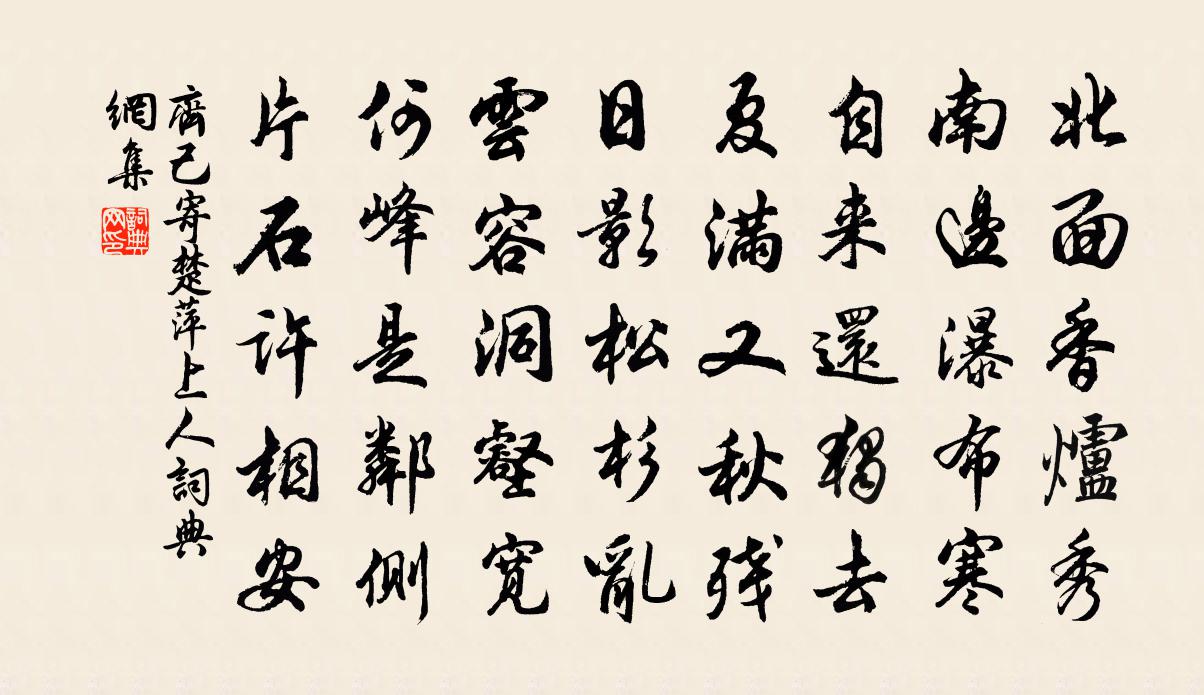 北面香爐秀
南邊瀑布寒
自來還獨去
夏滿又秋殘
日影松杉亂
雲容洞壑寬
何峰是鄰側
片石許相安
齊己寄楚萍上人詞典
網集
詞典
网印